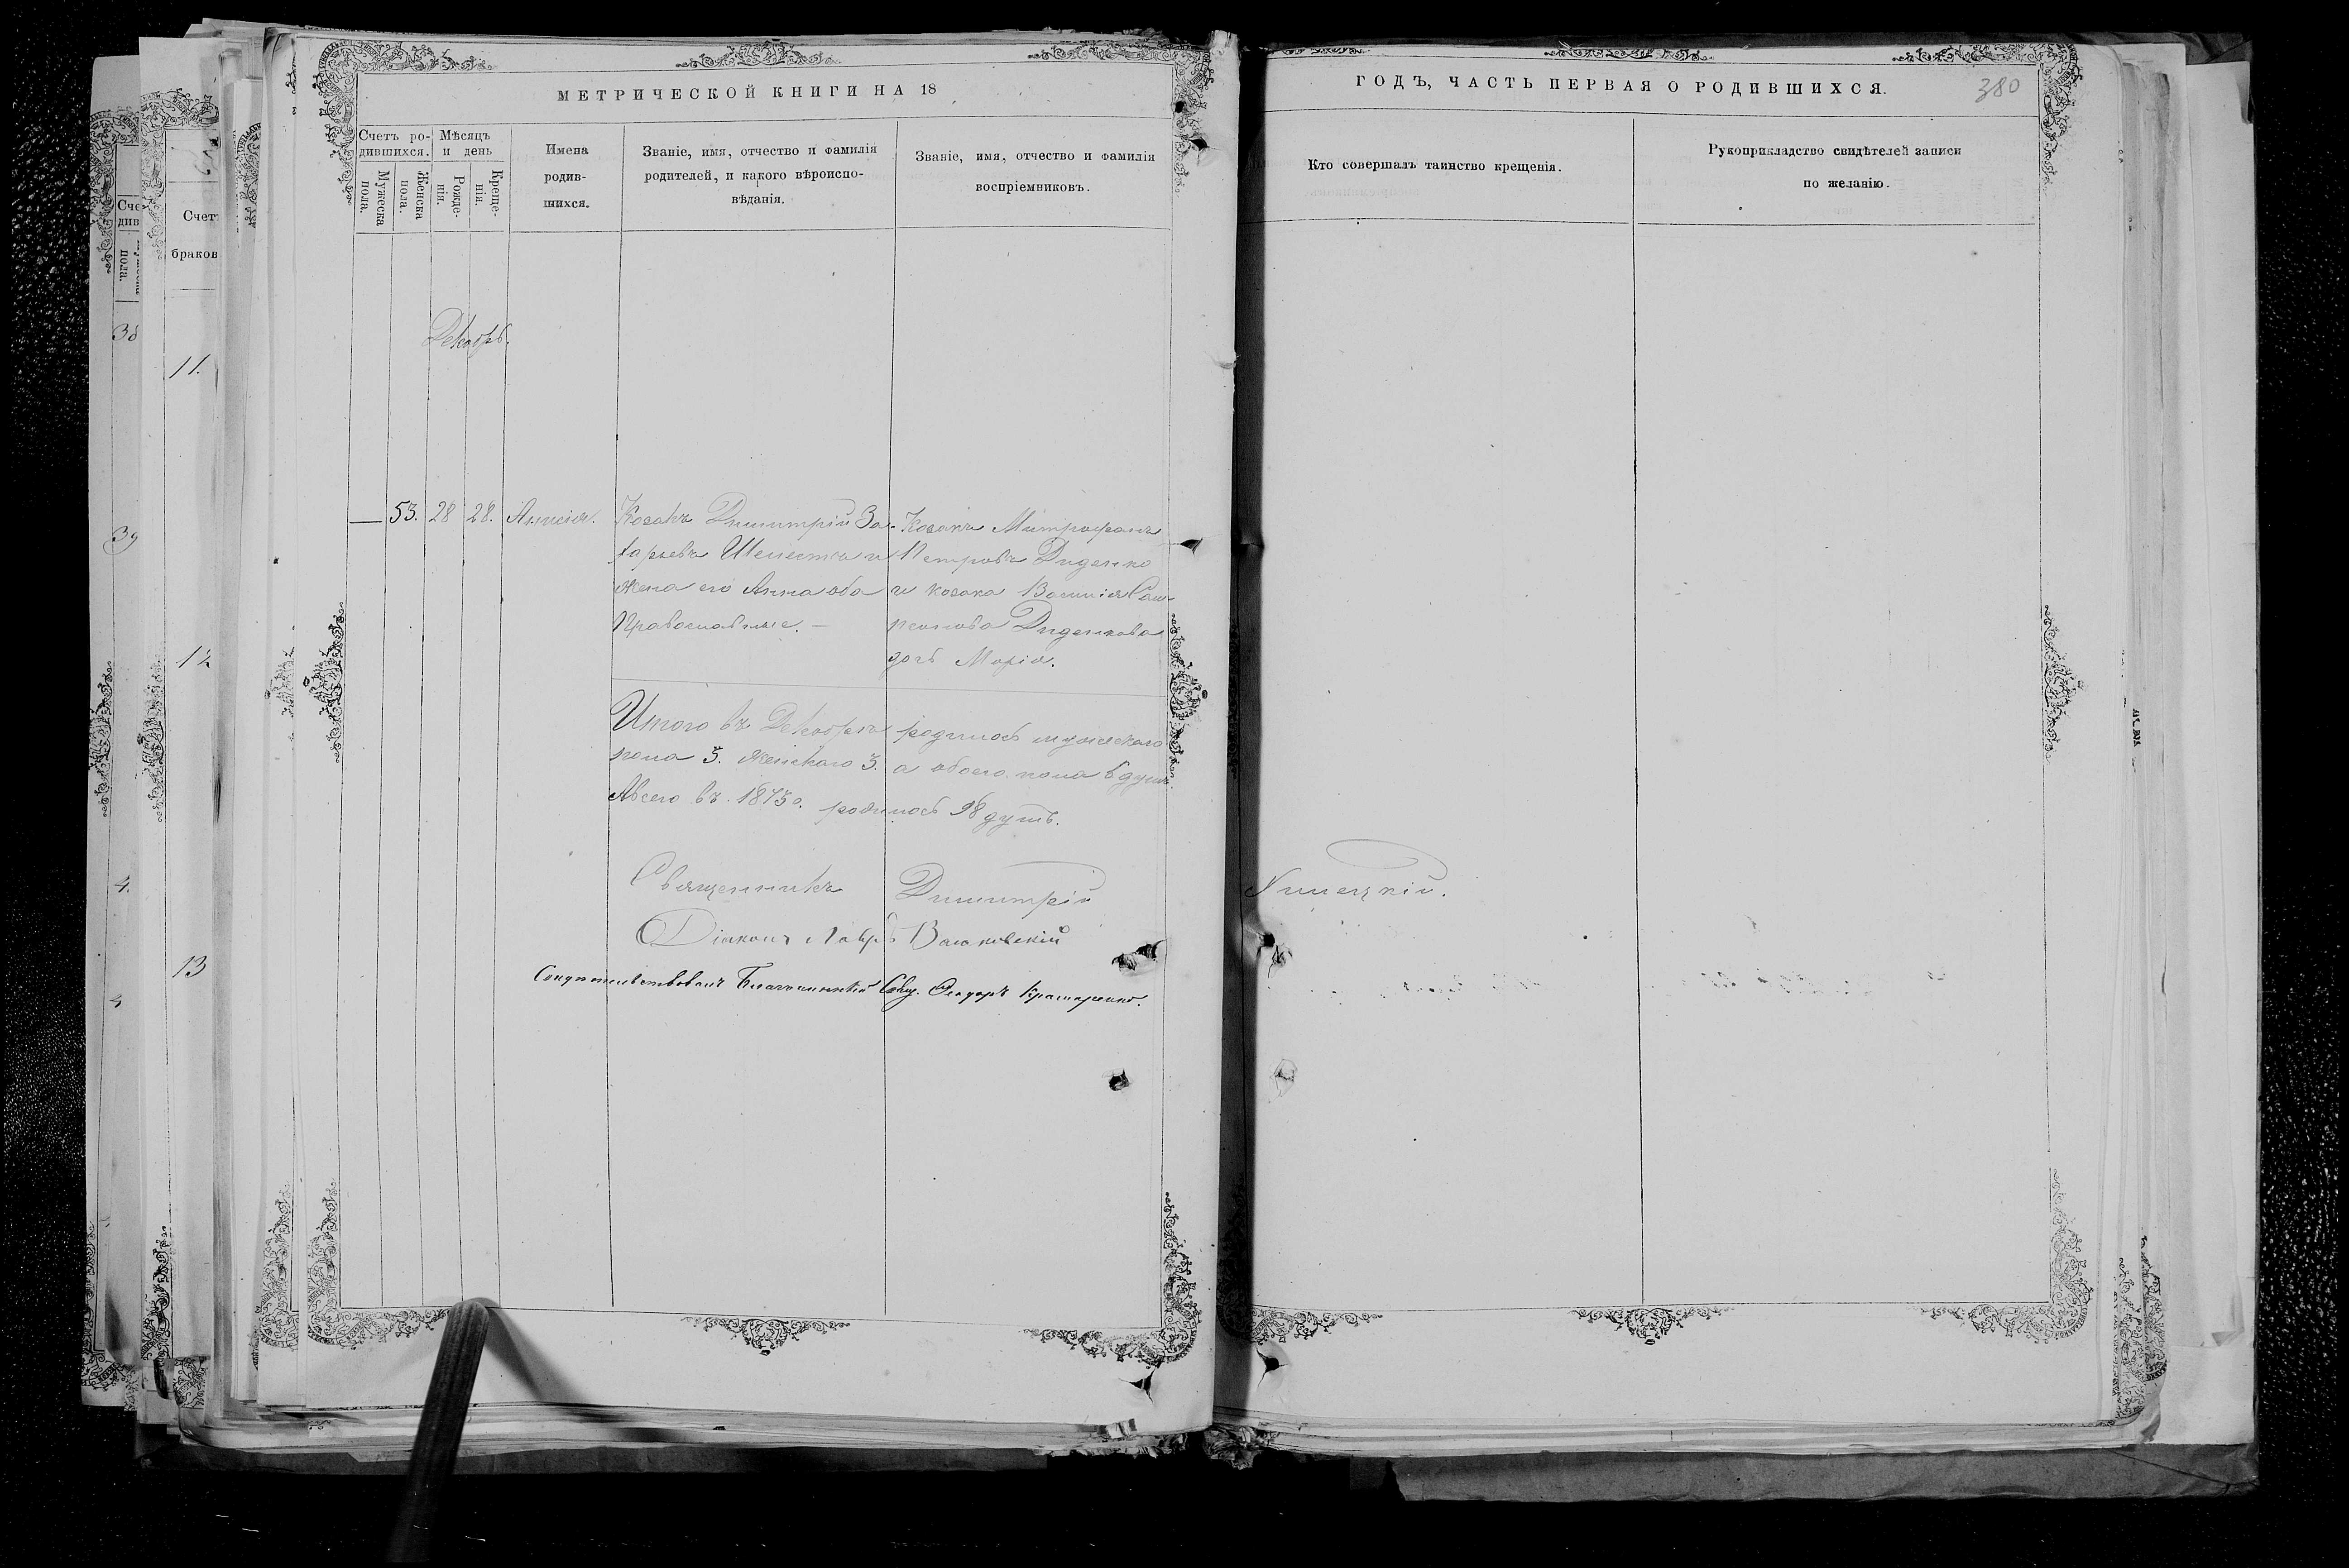 МЕТРИЧЕСКОЙ КНИГИ НА 18
ГОДЪ, ЧАСТЬ ПЕРВАЯ О РОДИВШИХСЯ.
380
Счетъ ро-
дившихся.
Мужеска пола.
Женска пола.
Мѣсяцъ
и день
Рожде-
нія.
Креще-
нія.
Имена
родив-
шихся.
Званіе, имя, отчество и фамилія
родителей, и какого вѣроиспо-
вѣданія.
Званіе, имя, отчество и фамилія
воспріемниковъ.
Кто совершалъ таинство крещенія.
Рукоприкладство свидѣтелей записи
по желанію.
Декабрь.
53. 28 28. Анисія.
Козакъ Димитрій За-
харьевъ Шелестъ и
жена его Анна оба
Православные.
Козакъ Митрофанъ
Петровъ Диденко
и козака Сам-
псонова Диденкова
дочь Марія.
Итого въ Декабрѣ родилось мужескаго
пола 3. женскаго 3. а обоего пола 6 душъ.
Авсего въ 1875 г. родилось 98 душъ.
Священникъ Димитрій
Діаконъ Лавръ
Свидѣтельствовалъ Благочинный Свящ. Ѳеодоръ Крамаренко.
Счет
браков
11.
12
13
39
4.